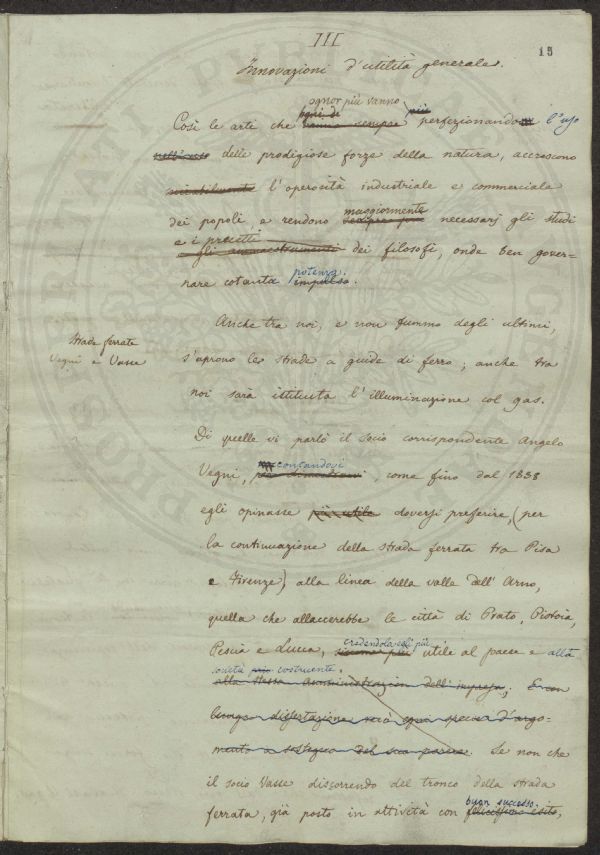 III
15
Innovazioni d'utilità generale.
ognor più vanno
Così le arti che hanno sempre più perfezionando l'uso
nell'uso delle prodigiose forze della natura, accrescono
l'operosità industriale e commerciale
maggiormente
dei popoli, e rendono sempre più necessarj gli studi
e i precetti
e gli ammaestramenti dei filosofi, onde ben gover-
potenza.
nare cotanta impulso.
Anche tra noi, e non fummo degli ultimi,
Strade ferrate
Vegni e Vasse
s'aprono le strade a guide di ferro; anche tra
noi sarà istituita l'illuminazione col gas.
Di quelle vi parlò il socio corrispondente Angelo
contandovi
Vegni, come fino dal 1838
egli opinasse più utile doversi preferire, (per
la continuazione della strada ferrata tra Pisa
e Firenze) alla linea della valle dell'Arno,
quella che allaccerebbe le città di Prato, Pistoia,
credendola egli più
Pescia e Lucca, siccome più utile al paese e alla
società costruente.
alla stessa Amministrazion dell'impresa; E con
lunga dissertazione recò ogni specie d'argo-
mento a sostegno del suo parere. Se non che
il socio Vasse discorrendo del tronco della strada
buon successo,
ferrata, già posto in attività con felicissimo esito,